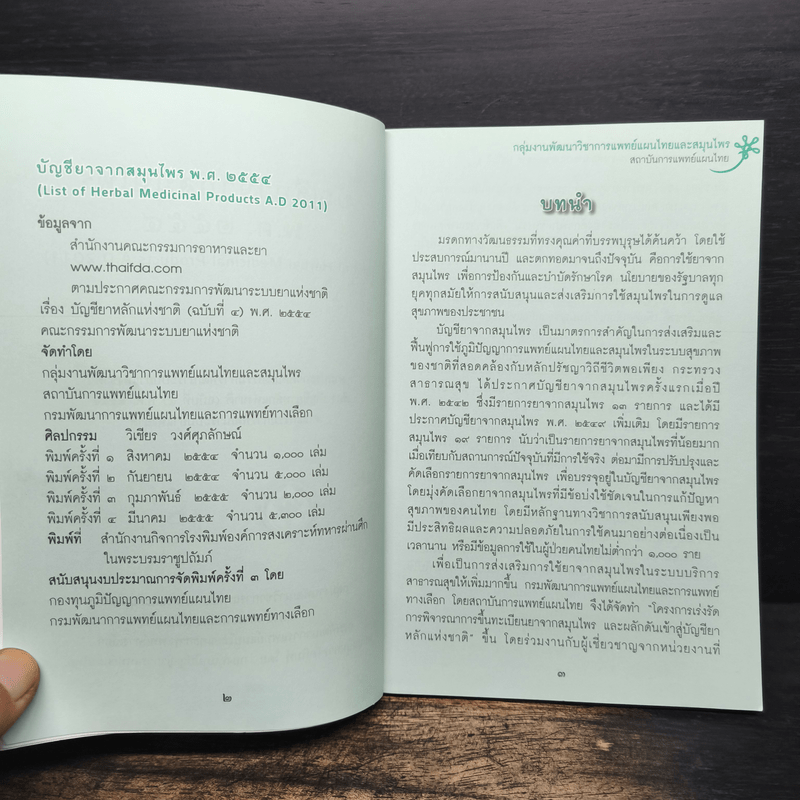 บัญชียาจากสมุนไพร พ.ศ. ๒๕๕๔
(List of Herbal Medicinal Products A.D 2011)
ข้อมูลจาก
สำนักงานคณะกรรมการอาหารและยา
www.thaifda.com
ตามประกาศคณะกรรมการพัฒนาระบบยาแห่งชาติ
เรื่อง บัญชียาหลักแห่งชาติ (ฉบับที่ ๔) พ.ศ. ๒๕๕๔
คณะกรรมการพัฒนาระบบยาแห่งชาติ
จัดทำโดย
กลุ่มงานพัฒนาวิชาการแพทย์แผนไทยและสมุนไพร
สถาบันการแพทย์แผนไทย
กรมพัฒนาการแพทย์แผนไทยและการแพทย์ทางเลือก
ศิลปกรรม วิเชียร วงศ์ศุภลักษณ์
พิมพ์ครั้งที่ ๑ สิงหาคม ๒๕๕๔ จำนวน ๑,๐๐๐ เล่ม
พิมพ์ครั้งที่ ๒ กันยายน ๒๕๕๔ จำนวน ๕,๐๐๐ เล่ม
พิมพ์ครั้งที่ ๓ กุมภาพันธ์ ๒๕๕๕ จำนวน ๒,๐๐๐ เล่ม
พิมพ์ครั้งที่ ๔ มีนาคม ๒๕๕๕ จำนวน ๕,๓๐๐ เล่ม
พิมพ์ที่ สำนักงานกิจการโรงพิมพ์องค์การสงเคราะห์ทหารผ่านศึก
ในพระบรมราชูปถัมภ์
สนับสนุนงบประมาณการจัดพิมพ์ครั้งที่ ๓ โดย
กองทุนภูมิปัญญาการแพทย์แผนไทย
กรมพัฒนาการแพทย์แผนไทยและการแพทย์ทางเลือก
๒
กลุ่มงานพัฒนาวิชาการแพทย์แผนไทยและสมุนไพร
สถาบันการแพทย์แผนไทย
บทนำ
มรดกทางวัฒนธรรมที่ทรงคุณค่าที่บรรพบุรุษได้ค้นคว้า โดยใช้
ประสบการณ์มานานปี และตกทอดมาจนถึงปัจจุบัน คือการใช้ยาจาก
สมุนไพร เพื่อการป้องกันและบำบัดรักษาโรค นโยบายของรัฐบาลทุก
ยุคทุกสมัยให้การสนับสนุนและส่งเสริมการใช้สมุนไพรในการดูแล
สุขภาพของประชาชน
บัญชียาจากสมุนไพร เป็นมาตรการสำคัญในการส่งเสริมและ
ฟื้นฟูการใช้ภูมิปัญญาการแพทย์แผนไทยและสมุนไพรในระบบสุขภาพ
ของชาติที่สอดคล้องกับหลักปรัชญาวิถีชีวิตพอเพียง กระทรวง
สาธารณสุข ได้ประกาศบัญชียาจากสมุนไพรครั้งแรกเมื่อปี
พ.ศ. ๒๕๔๒ ซึ่งมีรายการยาจากสมุนไพร ๑๓ รายการ และได้มี
ประกาศบัญชียาจากสมุนไพร พ.ศ. ๒๕๔๙ เพิ่มเติม โดยมีรายการ
สมุนไพร ๑๙ รายการ นับว่าเป็นรายการยาจากสมุนไพรที่น้อยมาก
เมื่อเทียบกับสถานการณ์ปัจจุบันที่มีการใช้จริง ต่อมามีการปรับปรุงและ
คัดเลือกรายการยาจากสมุนไพร เพื่อบรรจุอยู่ในบัญชียาจากสมุนไพร
โดยมุ่งคัดเลือกยาจากสมุนไพรที่มีข้อบ่งใช้ชัดเจนในการแก้ปัญหา
สุขภาพของคนไทย โดยมีหลักฐานทางวิชาการสนับสนุนเพียงพอ
มีประสิทธิผลและความปลอดภัยในการใช้คนมาอย่างต่อเนื่องเป็น
เวลานาน หรือมีข้อมูลการใช้ในผู้ป่วยคนไทยไม่ต่ำกว่า ๑,๐๐๐ ราย
เพื่อเป็นการส่งเสริมการใช้ยาจากสมุนไพรในระบบบริการ
สาธารณสุขให้เพิ่มมากขึ้น กรมพัฒนาการแพทย์แผนไทยและการแพทย์
ทางเลือก โดยสถาบันการแพทย์แผนไทย จึงได้จัดทำ "โครงการเร่งรัด
การพิจารณาการขึ้นทะเบียนยาจากสมุนไพร และผลักดันเข้าสู่บัญชียา
หลักแห่งชาติ" ขึ้น โดยร่วมงานกับผู้เชี่ยวชาญจากหน่วยงานที่
๓